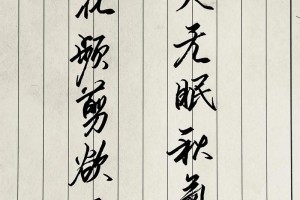 无眠秋
花频剪欲